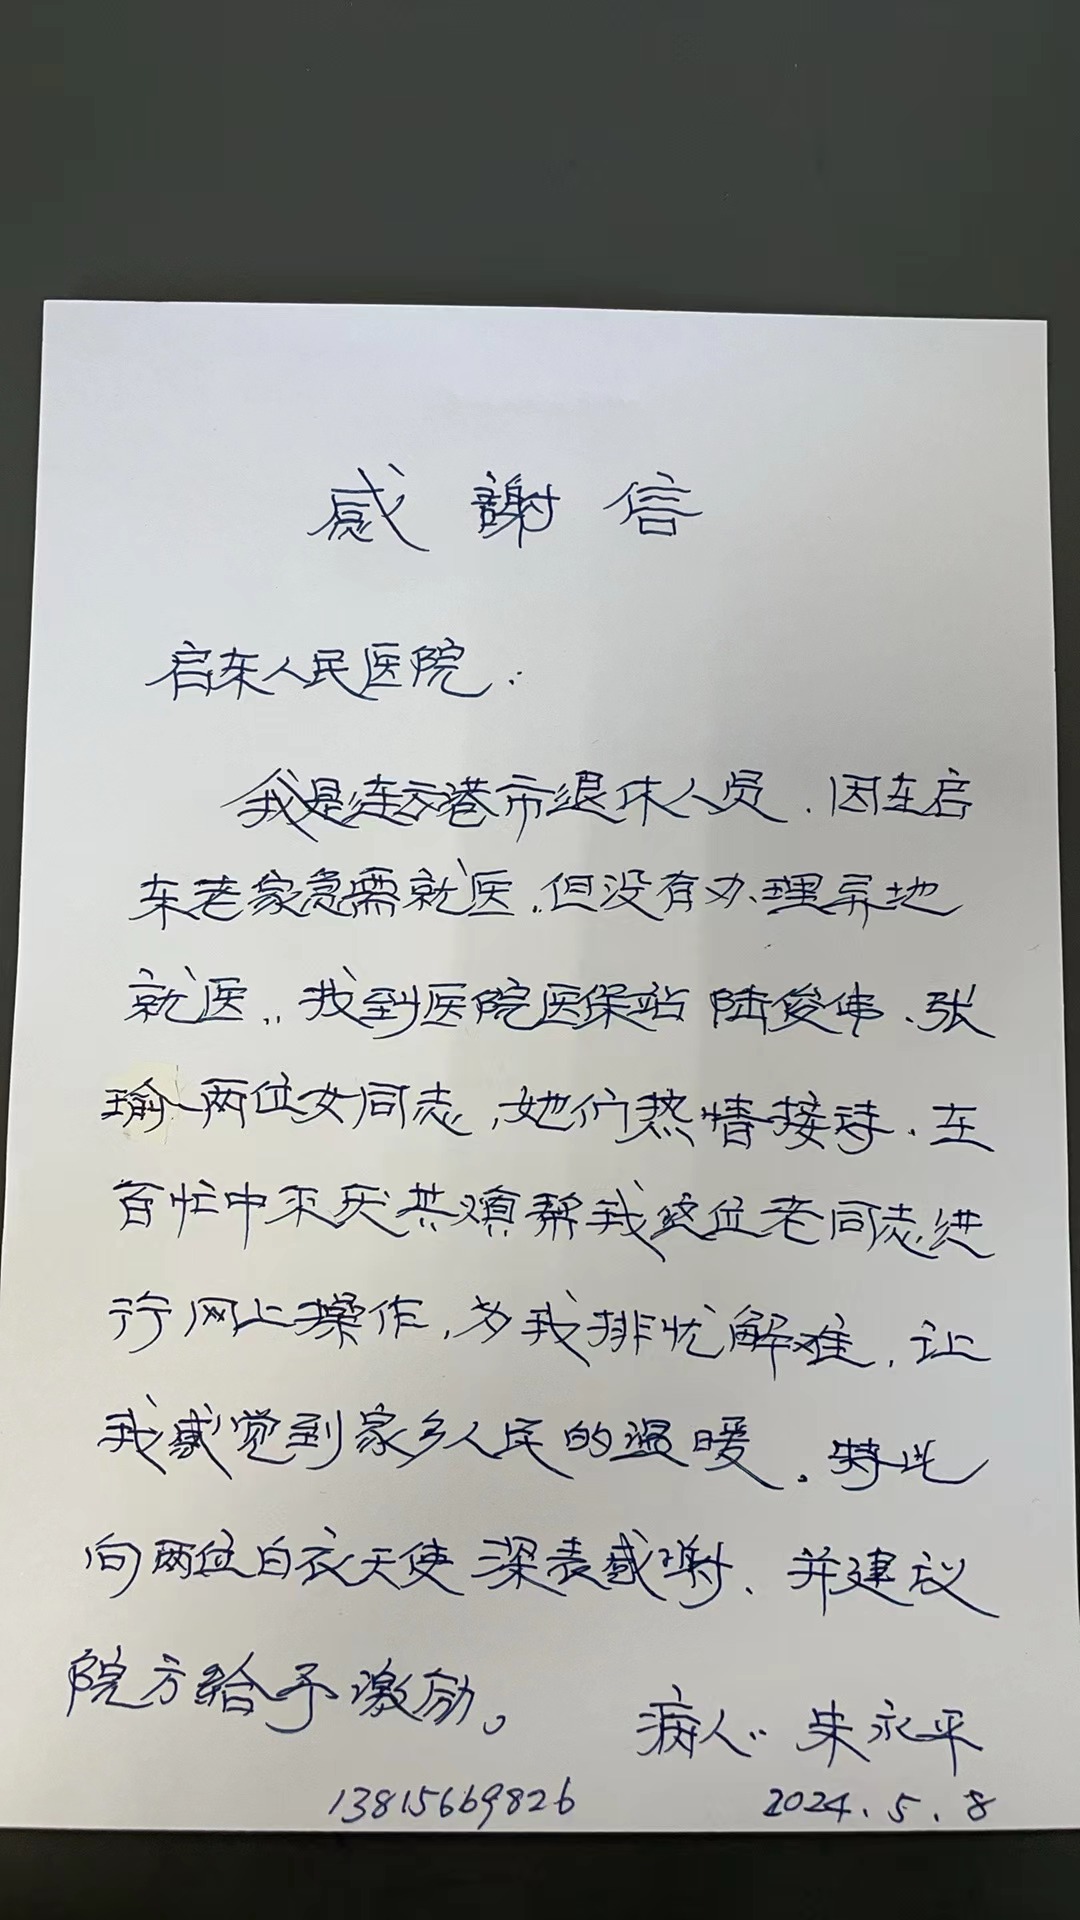 感謝信
启东人民医院：
我是连云港市退休人员，因在启
东老家急需就医，但没有办理异地
就医，我到医院医保站陆俊伟、张
瑜两位女同志，她们热情接待，在
百忙中不厌其烦帮我这位老同志进
行网上操作，为我排忧解难，让
我感觉到家乡人民的温暖。特此
向两位白衣天使深表感谢、并建议
院方给予激励。
病人：朱永平
13815669826 2024.5.8